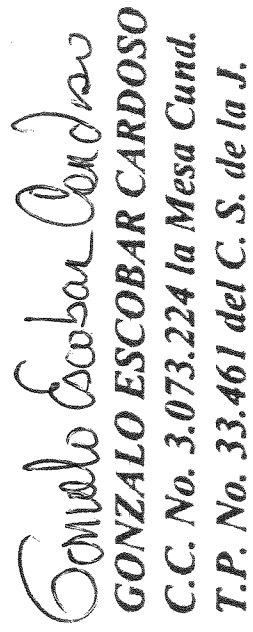 Gonzalo Escobar Cardoso
GONZALO ESCOBAR CARDOSO
C.C. No. 3.073.224 la Mesa Cund.
T.P. No. 33.461 del C. S. de la J.